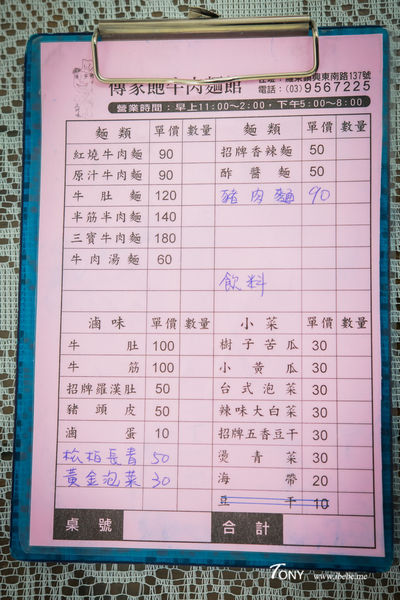 傳家飽牛肉麵館
羅東鎮興東南路137號
電話：(03)9567225
營業時間：早上11:00~2:00，下午5:00~8:00
麵類 單價 數量 麵類 單價 數量
紅燒牛肉麵 90 招牌香辣麵 50
原汁牛肉麵 90 酢醬麵 50
牛肚麵 120 豬肉麵 90
半筋半肉麵 140
三寶牛肉麵 180
牛肉湯麵 60
飲料
滷味 單價 數量 小菜 單價 數量
牛肚 100 樹子苦瓜 30
牛筋 100 小黃瓜 30
招牌羅漢肚 50 台式泡菜 30
豬頭皮 50 辣味大白菜 30
滷蛋 10 招牌五香豆干 30
松柏長青 50 燙青菜 30
黃金泡菜 30 海帶 20
豆干 10
桌號 合計
TONY www.ibebe.me